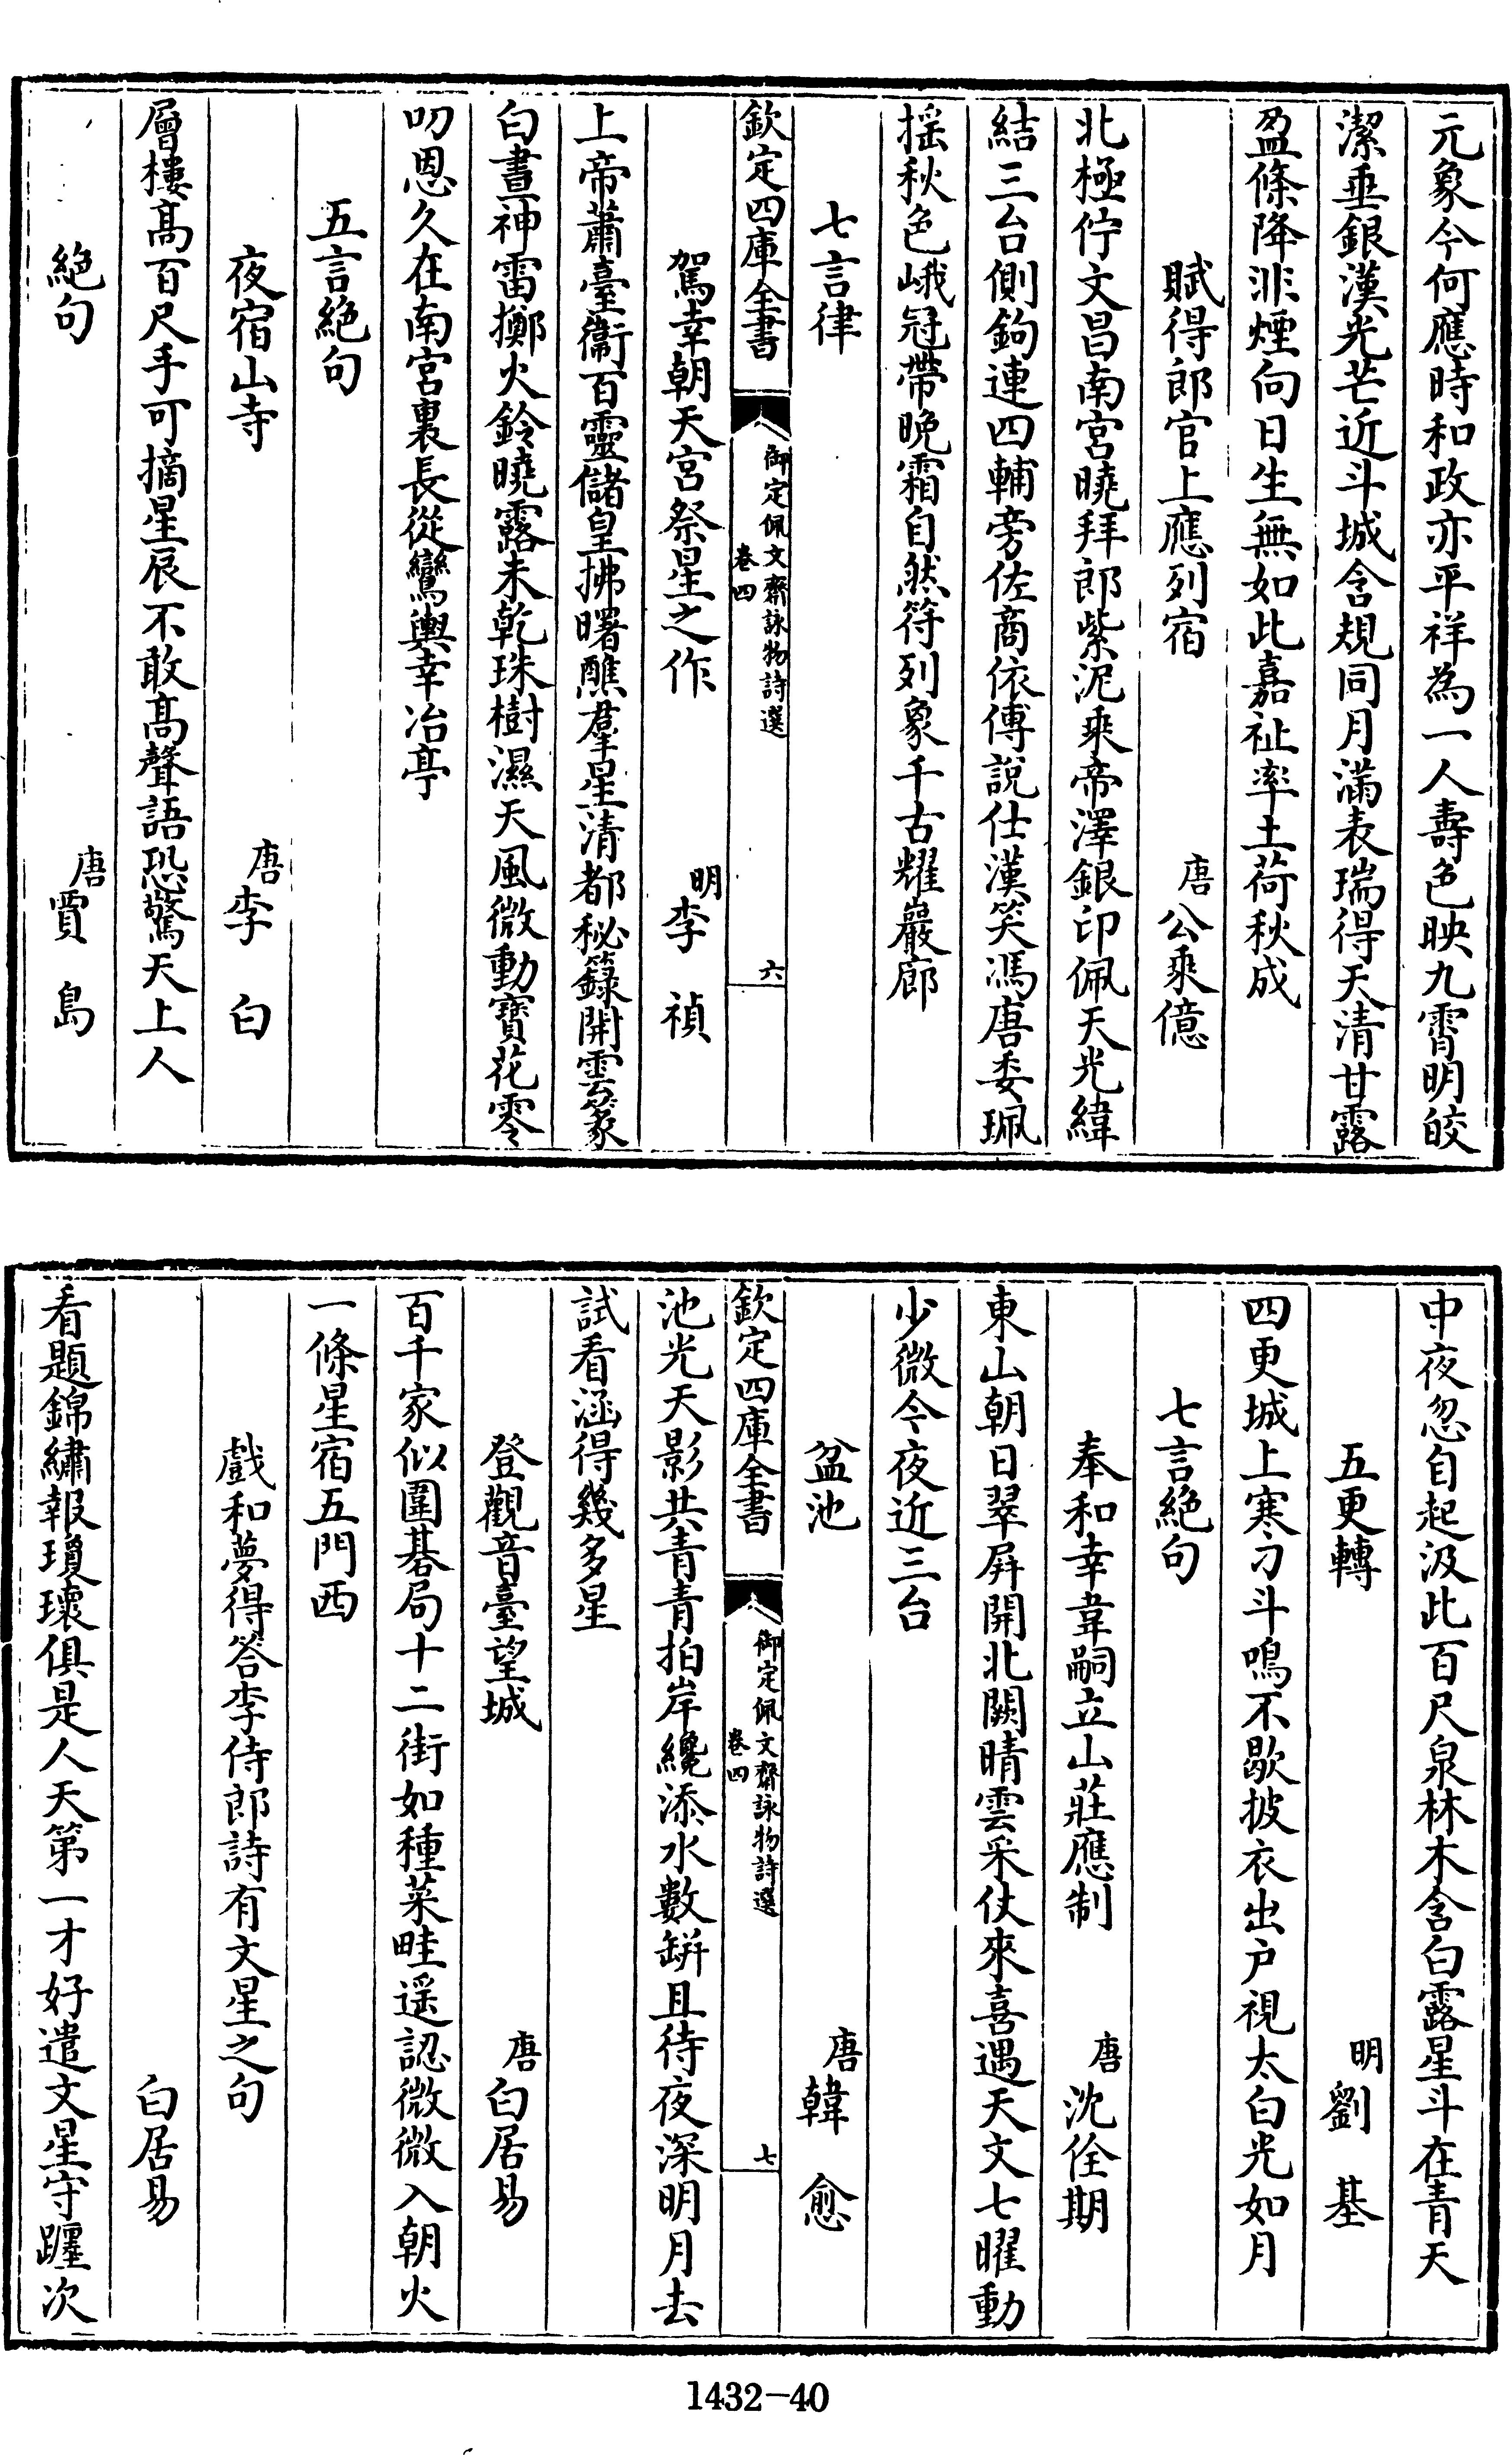 元象今何應時和政亦平祥為一人壽色映九霄明皎
潔垂銀漢光芒近斗城含規同月滿表瑞得天清甘露
盈條降非煙向日生無如此嘉祉率土荷秋成
賦得郎官上應列宿 唐 公乘億
北極佇文昌南宮曉拜郎紫泥乘帝澤銀印佩天光緯
結三台側鉤連四輔旁佐商依傅說仕漢笑馮唐委珮
搖秋色峨冠帶晚霜自然符列象千古耀巖廊
七言律
欽定四庫全書 御定佩文齋詠物詩選 卷四 六
駕幸朝天宮祭星之作 明 李禎
上帝蕭臺衞百靈儲皇拂曙醮羣星清都秘籙開雲篆
白晝神雷擲火鈴曉露未乾珠樹濕天風微動寶花零
叨恩久在南宮裏長從鸞輿幸冶亭
五言絕句
夜宿山寺 唐 李白
層樓髙百尺手可摘星辰不敢髙聲語恐驚天上人
絕句 唐 賈島
中夜忽自起汲此百尺泉林木含白露星斗在青天
五更轉 明 劉基
四更城上寒刁斗鳴不歇披衣出户視太白光如月
七言絕句
奉和幸韋嗣立山莊應制 唐 沈佺期
東山朝日翠屏開北闕晴雲采仗來喜遇天文七曜動
少微今夜近三台
盆池 唐 韓愈
欽定四庫全書 御定佩文齋詠物詩選 卷四 七
池光天影共青青拍岸纔添水數缾且待夜深明月去
試看涵得幾多星
登觀音臺望城 唐 白居易
百千家似圍碁局十二街如種菜畦遥認微微入朝火
一條星宿五門西
戲和夢得答李侍郎詩有文星之句
白居易
看題錦繡報瓊瓌俱是人天第一才好遣文星守躔次
1432-40